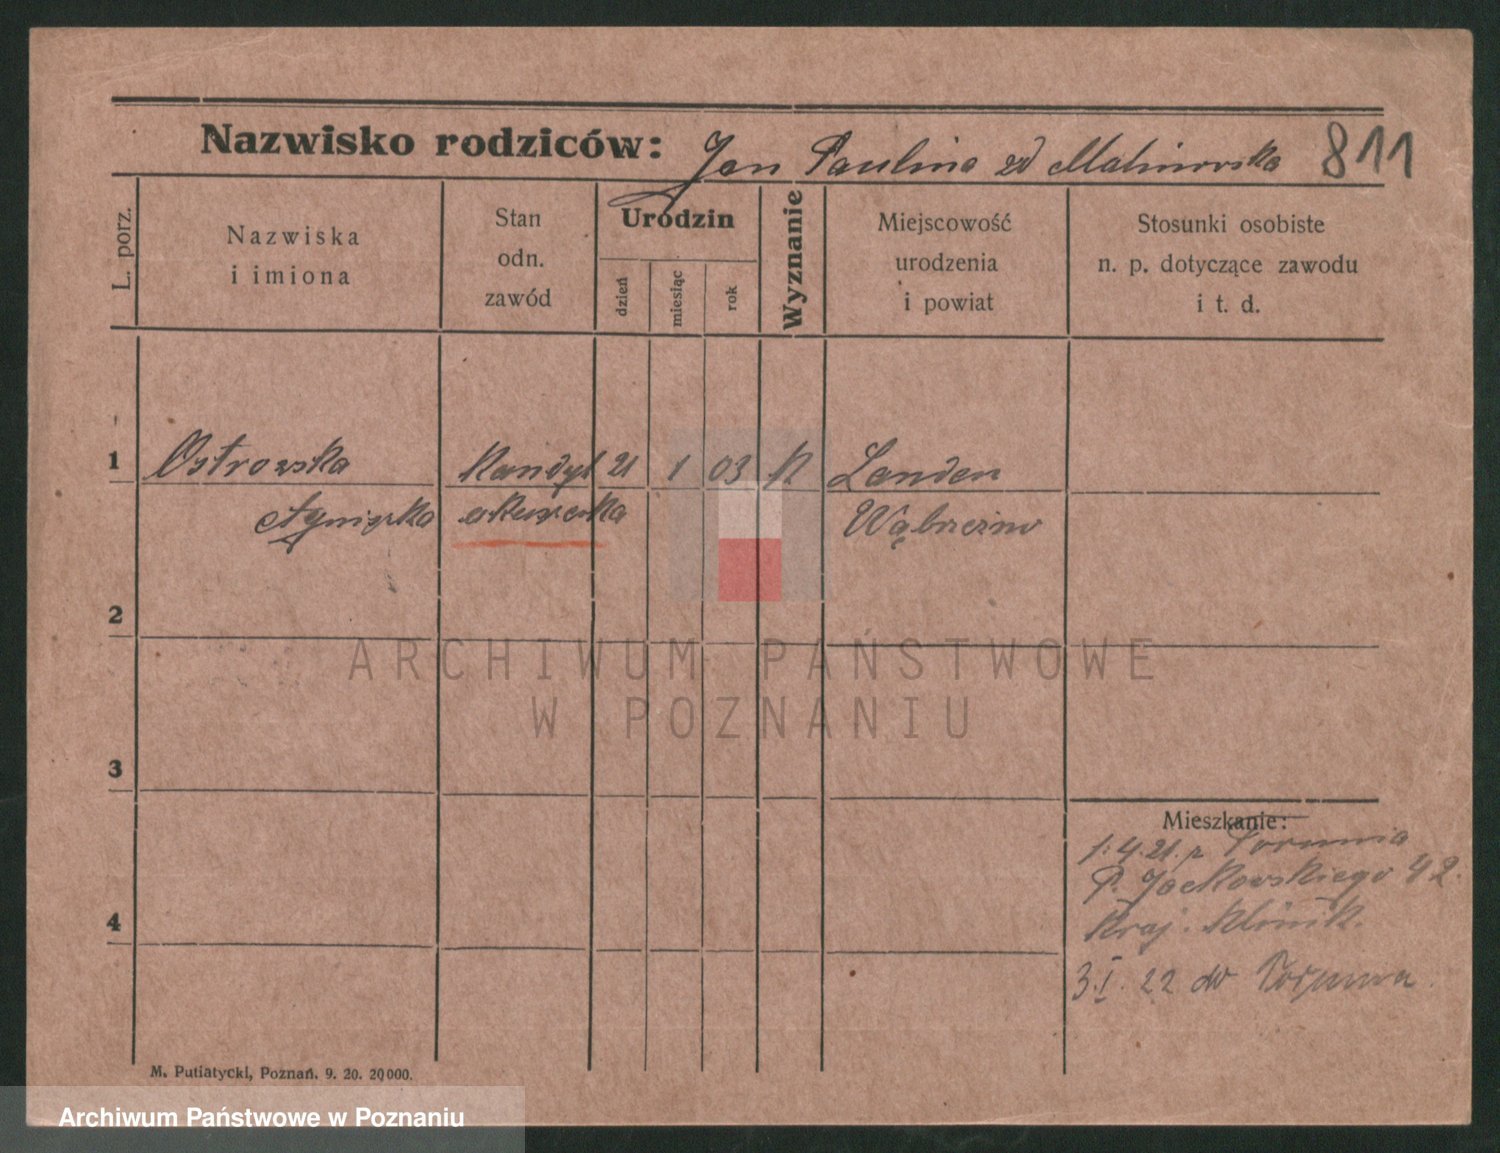 Nazwisko rodziców: Jan Paulina zd Malinowska 811
L. porz.
Nazwiska
i imiona
Stan
odn.
zawód
Urodzin
dzień
miesiąc
rok
Wyznanie
Miejscowość
urodzenia
i powiat
Stosunki osobiste
n. p. dotyczące zawodu
i t. d.
1 Ostrowska Kandyd 21 1 03 K Landen
Agnieszka akuszerka Wąbrzeźno
2
ARCHIWUM PAŃSTWOWE
W POZNANIU
3
Mieszkanie:
1.4.21. z Torunia
P. Jackowskiego 42.
4 Kraj. Klinik.
3.I.22 do Torunia.
M. Putiatycki, Poznań. 9. 20. 20000.
Archiwum Państwowe w Poznaniu